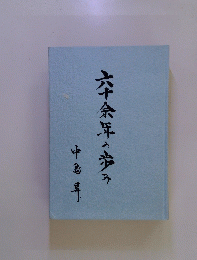 六十余年の歩み
中島 昇